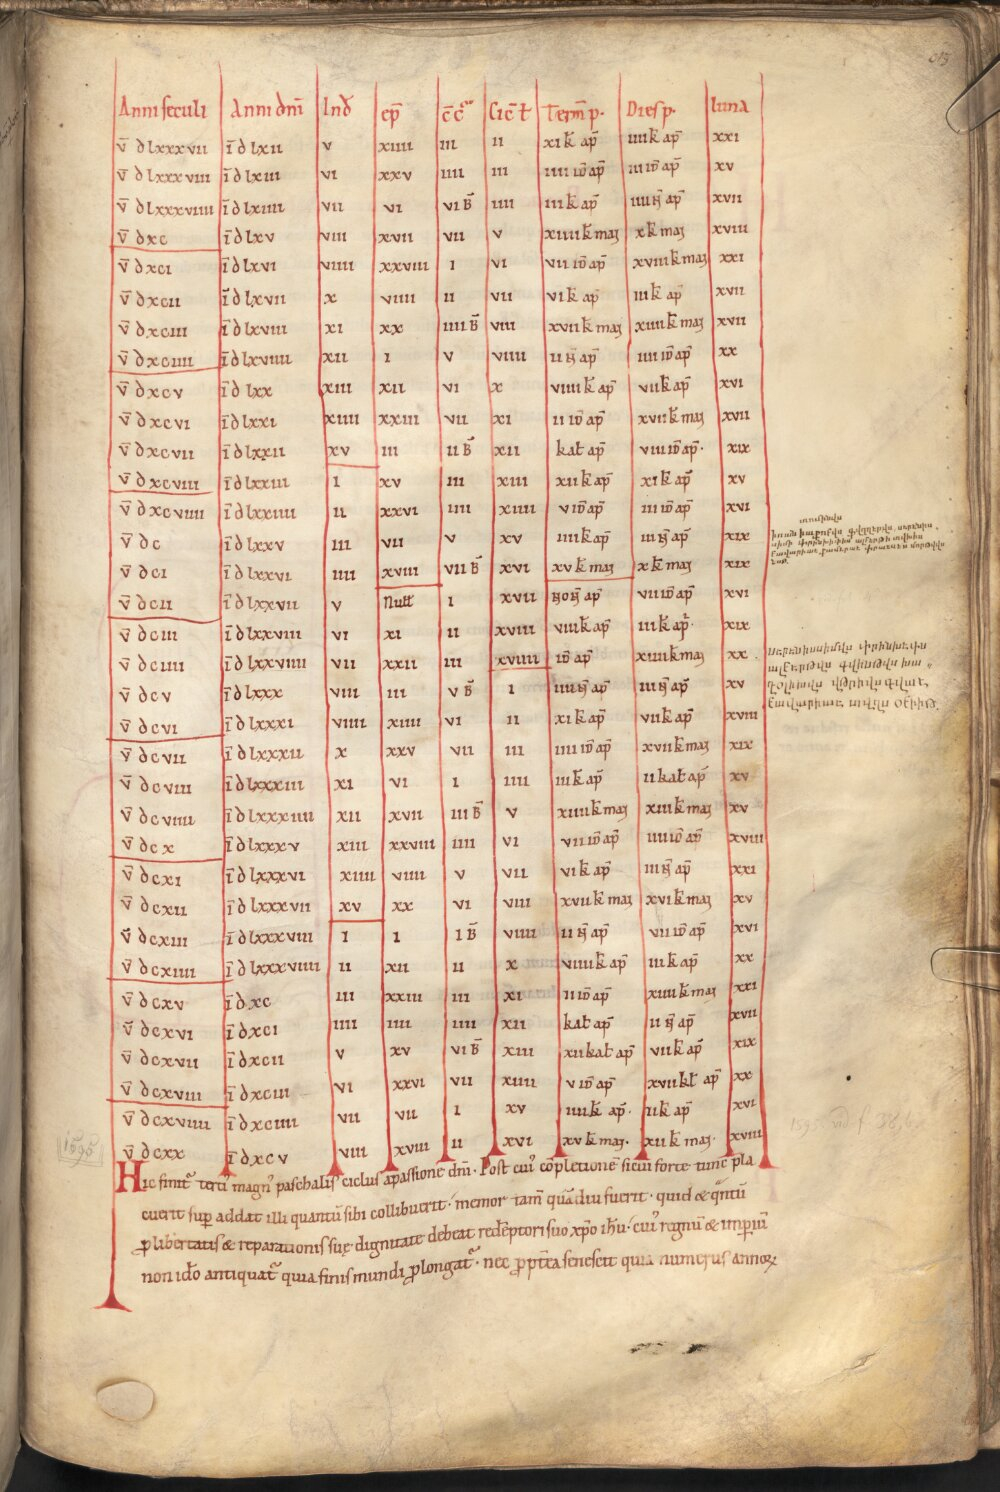 Anni seculi Anni dñi Ind ep̄ c̄c̄ Cic̄t Term̄ p. Dies p. luna
v̄ dlxxxvii ī dlxii v xiiii iii ii xi k̄ ap̄ iiii k̄ ap̄ xxi
v̄ dlxxxviii ī dlxiii vi xxv iiii iii iiii id̄ ap̄ iii id̄ ap̄ xv
v̄ dlxxxviiii ī dlxiiii vii vi vi B̄ iiii iii k̄ ap̄ iiii n̄ ap̄ xvii
v̄ dxc ī dlxv viii xvii vii v xiiii k̄ mai x k̄ mai xviii
v̄ dxci ī dlxvi viiii xxviii i vi vii id̄ ap̄ xviii k̄ mai xxi
v̄ dxcii ī dlxvii x viiii ii vii vi k̄ ap̄ iii k̄ ap̄ xvii
v̄ dxciii ī dlxviii xi xx iiii B̄ viii xvii k̄ mai xiiii k̄ mai xvii
v̄ dxciiii ī dlxviiii xii i v viiii ii n̄ ap̄ iiii id̄ ap̄ xx
v̄ dxcv ī dlxx xiii xii vi x viiii k̄ ap̄ vii k̄ ap̄ xvi
v̄ dxcvi ī dlxxi xiiii xxiii vii xi ii id̄ ap̄ xvii k̄ mai xvii
v̄ dxcvii ī dlxxii xv iii ii B̄ xii kal ap̄ viii id̄ ap̄. xix
v̄ dxcviii ī dlxxiii i xv iii xiii xii k̄ ap̄ xi k̄ ap̄ xv
v̄ dxcviiii ī dlxxiiii ii xxvi iiii xiiii v id̄ ap̄ iii id̄ ap̄ xvi
v̄ dc ī dlxxv iii vii v xv iiii k̄ ap̄ iii n̄ ap̄ xix
v̄ dci ī dlxxvi iiii xviii vii B̄ xvi xv k̄ mai x k̄ mai xix
v̄ dcii ī dlxxvii v Null i xvii non̄ ap̄ vii id̄ ap̄ xvi
v̄ dciii ī dlxxviii vi xi ii xviii viii k̄ ap̄ iii k̄ ap̄. xix
v̄ dciiii ī dlxxviiii vii xxii iii xviiii id̄ ap̄ xiiii k̄ mai xx
v̄ dcv ī dlxxx viii iii v B̄ i iiii n̄ ap̄ iii n̄ ap̄ xv
v̄ dcvi ī dlxxxi viiii xiiii vi ii xi k̄ ap̄ vii k̄ ap̄ xviii
v̄ dcvii ī dlxxxii x xxv vii iii iiii id̄ ap̄ xvii k̄ mai xix
v̄ dcviii ī dlxxxiii xi vi i iiii iii k̄ ap̄ ii kal ap̄ xv
v̄ dcviiii ī dlxxxiiii xii xvii iii B̄ v xiiii k̄ mai xiii k̄ mai xv
v̄ dcx ī dlxxxv xiii xxviii iiii vi vii id̄ ap̄ iiii id̄ ap̄ xviii
v̄ dcxi ī dlxxxvi xiiii viiii v vii vi k̄ ap̄ iii n̄ ap̄ xxi
v̄ dcxii ī dlxxxvii xv xx vi viii xvii k̄ mai xvi k̄ mai xv
v̄ dcxiii ī dlxxxviii i i i B̄ viiii ii n̄ ap̄ vii id̄ ap̄ xvi
v̄ dcxiiii ī dlxxxviiii ii xii ii x viiii k̄ ap̄ iii k̄ ap̄ xx
v̄ dcxv ī dxc iii xxiii iii xi ii id̄ ap̄ xiiii k̄ mai xxi
v̄ dcxvi ī dxci iiii iiii iiii xii kal ap̄ ii n̄ ap̄ xvii
v̄ dcxvii ī dxcii v xv vi B̄ xiii xii kal ap̄ vii k̄ ap̄ xix
v̄ dcxviii ī dxciii vi xxvi vii xiiii v id̄ ap̄ xvii kl ap̄ xx
v̄ dcxviiii ī dxciiii vii vii i xv iiii k̄ ap̄. ii k̄ ap̄ xvi
v̄ dcxx ī dxcv viii xviii ii xvi xv k̄ mai. xii k̄ mai. xviii
1595
Hic finit᷒ terti᷒ magn᷒ paschalis ciclus apassione dñi. Post cui᷒ cōpletionē sicui forte tunc pla
cuerit sup addat illi quantū sibi collibuerit. memor tam̄ quādiu fuerit. quid & q̄ntū
plibertatis & reparationis suę dignitate debeat redēptori suo xpo ihu. cui᷒ regnū & imp̄iū
non ido antiquat᷒ quia finis mundi plongat᷒. nec ppt̄ea senescit quia numerus annoꝝ